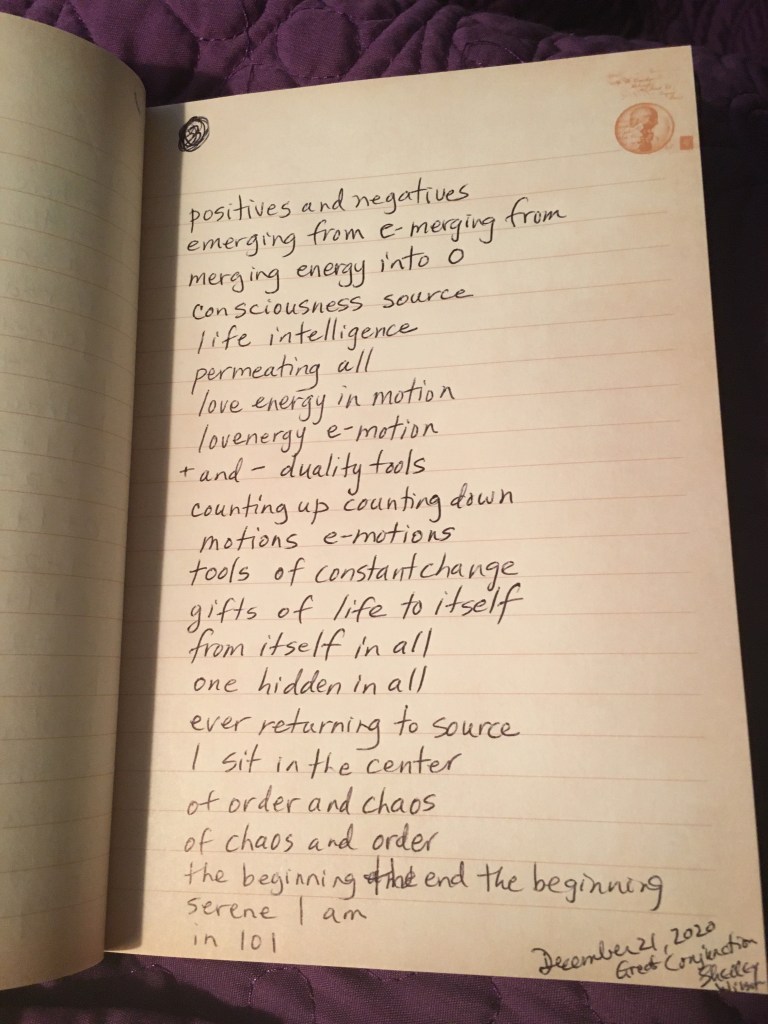 positives and negatives
emerging from e-merging from
merging energy into 0
consciousness source
life intelligence
permeating all
love energy in motion
lovenergy e-motion
+ and - duality tools
counting up counting down
motions e-motions
tools of constant change
gifts of life to itself
from itself in all
one hidden in all
ever returning to source
I sit in the center
of order and chaos
of chaos and order
the beginning the end the beginning
serene I am
in 101
December 21, 2020
Great Conjunction
Shelley